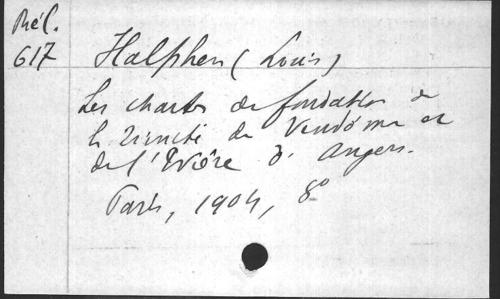 Mél.
617
Halphen (Louis)
Les chartes de fondation de
la Trinité de Vendôme et
de l'Evière d'Angers.
Paris, 1904, 8°